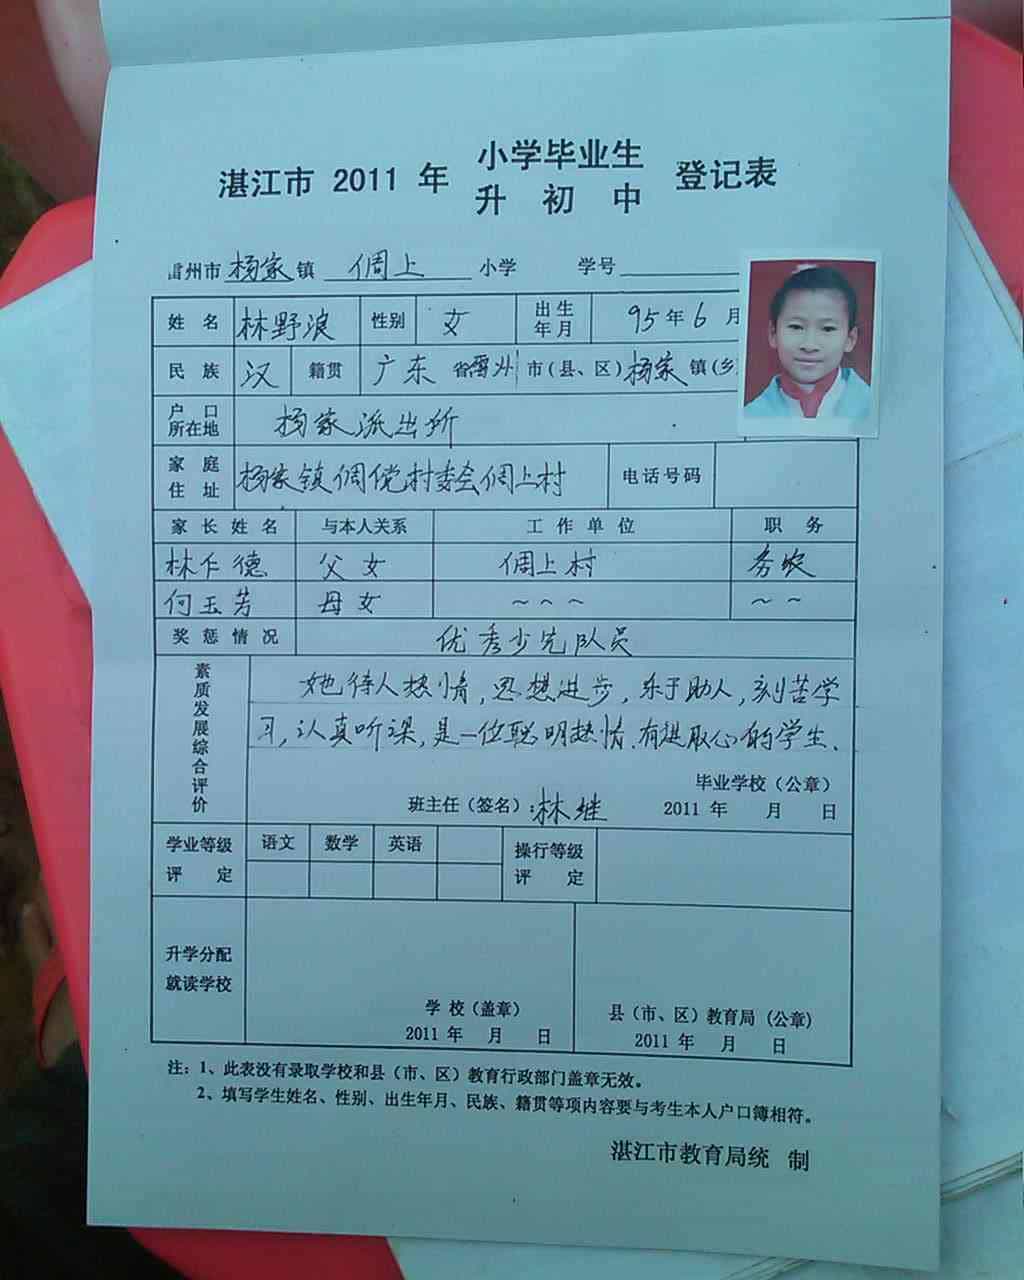 湛江市 2011 年 小学毕业生 登记表
升 初 中
雷州市 杨家 镇 倜上 小学 学号
姓 名 林野浪 性别 女 出生年月 95 年 6 月
民 族 汉 籍贯 广东 省 雷州 市(县、区) 杨家 镇(乡
户 口 所在地 杨家派出所
家 庭 住 址 杨家镇倜傥村委会倜上村 电话号码
家 长 姓 名 与本人关系 工 作 单 位 职 务
林 德 父女 倜上村 务农
何玉芳 母女 ～～～ ～～
奖 惩 情 况 优秀少先队员
素质发展综合评价
她待人热情,思想进步,乐于助人,刻苦学
习,认真听课,是一位聪明热情、有进取心的学生、
毕业学校（公章）
班主任（签名）:林 2011 年 月 日
学业等级 语文 数学 英语 操行等级
评 定 评 定
升学分配
就读学校
学 校（盖章） 县（市、区）教育局 (公章)
2011 年 月 日 2011 年 月 日
注：1、此表没有录取学校和县（市、区）教育行政部门盖章无效。
2、填写学生姓名、性别、出生年月、民族、籍贯等项内容要与考生本人户口簿相符。
湛江市教育局统 制